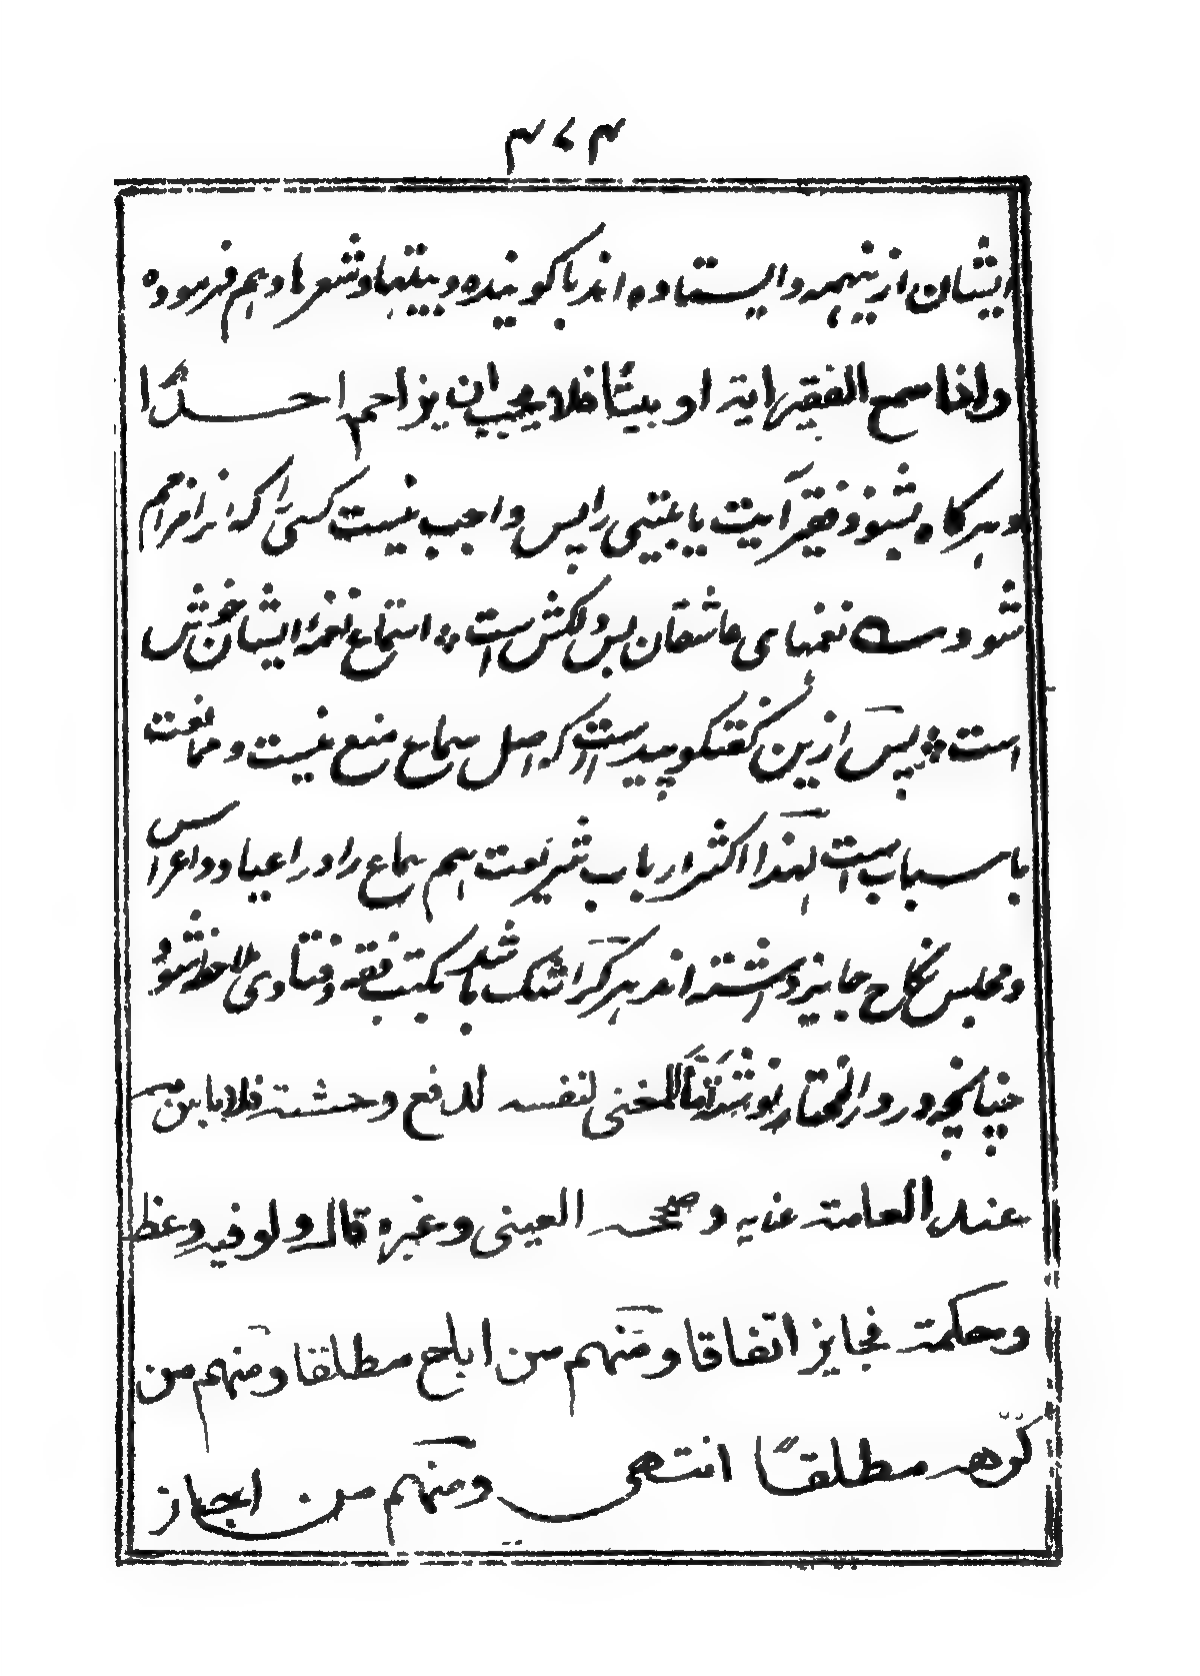 ۳۷۳
ایشان ازینهمه وایستاده اند با کوینده وبیتها وشعرها وهم فرموده
واذا سمع الفقیر ایة او بیتًا فلا یجب ان یزاحم احدًا
وهرکاه بشنود فقیر آیت یا بیتی را پس واجب نیست کسی را که اندرانراهم
شود نغمهای عاشقان بس دلکش است استماع نغمۀ ایشان خوش
است پس ازین کفتکو پیداست که اصل سماع منع نیست وممانعت
باسباب است لهٰذا اکثر ارباب شریعت هم سماع را در اعیاد واعراس
ومجلس نکاح جایز داشته اند هر کرا شک باشد بکتب فقه وفتاوی ملاحظه شود
چنانچه در در المختار نوشته التغنی لنفسه لدفع وحشته فلا باس به
عند العامة عنایه وصححه العینی وغیره قال ولو فیه وعظ
وحکمة فجایز اتفاقا ومنهم من اباح مطلقا ومنهم من
کرّهه مطلقًا انتهی ومنهم من اجاز